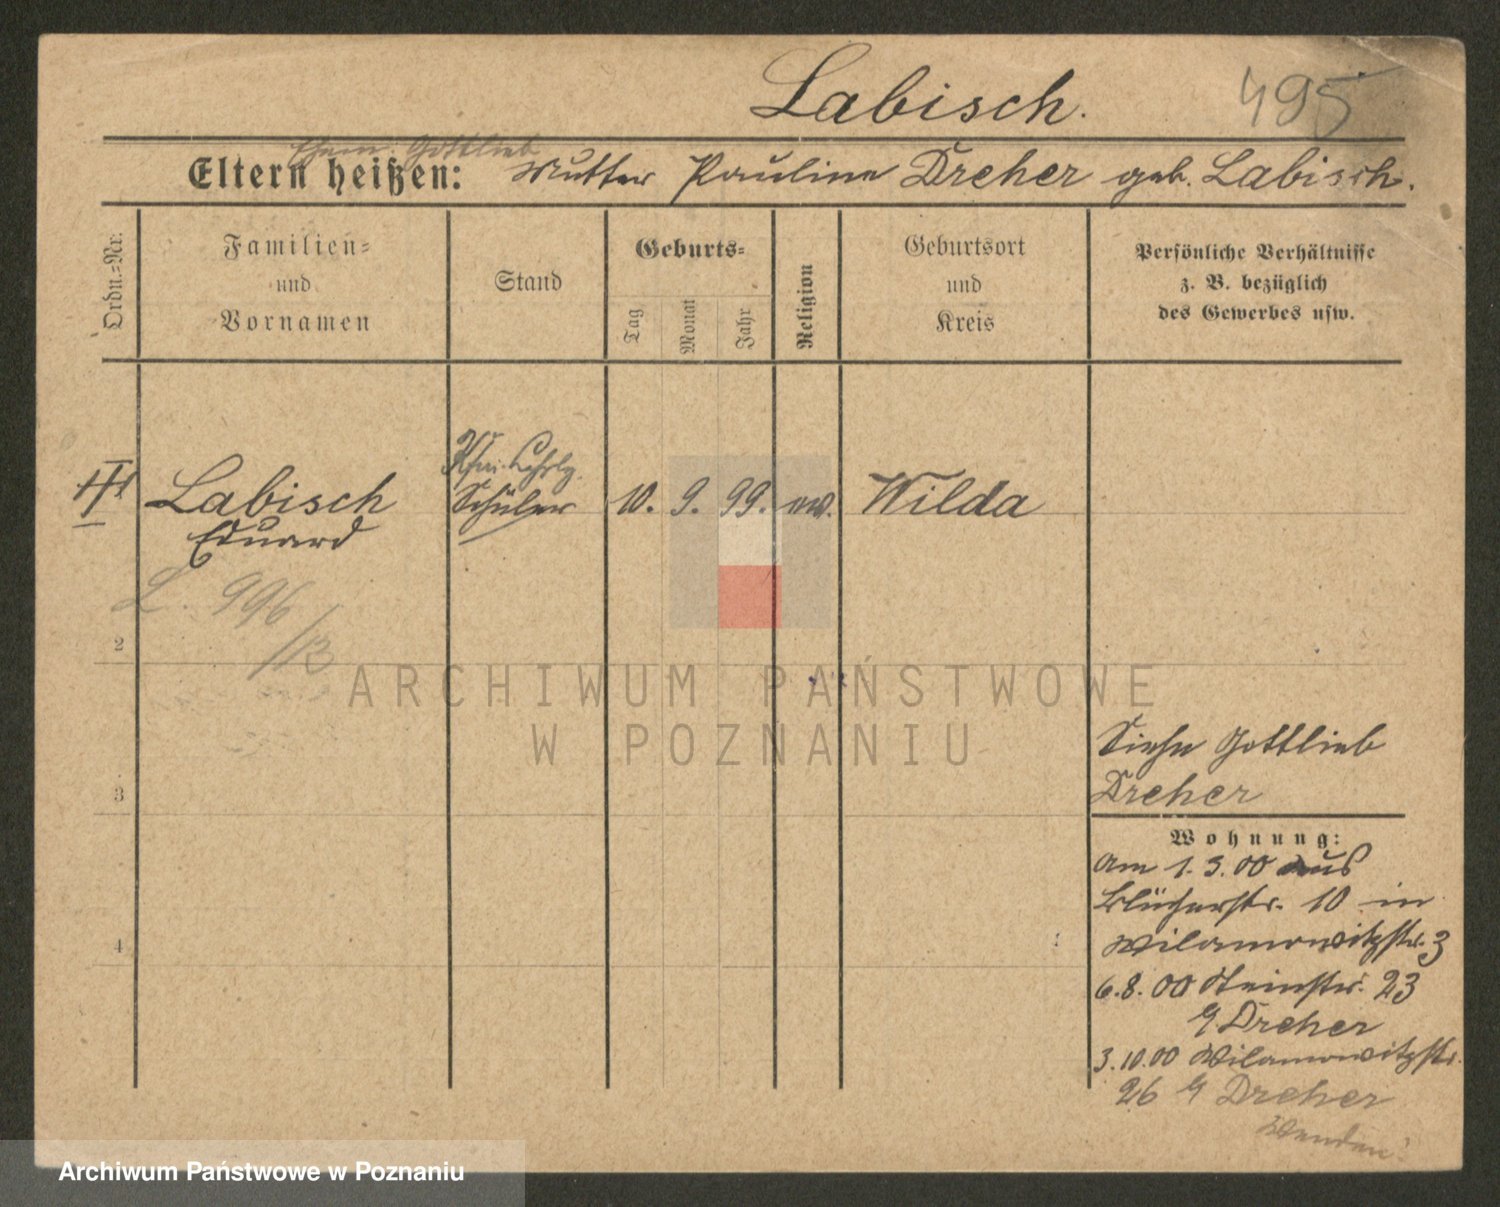 Labisch.
495
Ehem. Gottlieb
Eltern heißen: Mutter Pauline Dreher geb. Labisch.
Ordn.=Nr.
Familien=
und
Vornamen
Stand
Geburts=
Tag
Monat
Jahr
Religion
Geburtsort
und
Kreis
Persönliche Verhältnisse
z. B. bezüglich
des Gewerbes usw.
Labisch
Eduard
Schüler
10. 9. 99. ev. Wilda
L. 996
/13
2
3
4
Siehe Gottlieb
Dreher
Wohnung:
Am 1. 3. 00 aus
Blücherstr. 10 in
Wilamowitzstr. 3
6. 8. 00 Steinstr. 23
Dreher
3. 10. 00 Wilamowitzstr.
26 Dreher
Wenden!
ARCHIWUM PAŃSTWOWE
W POZNANIU
Archiwum Państwowe w Poznaniu